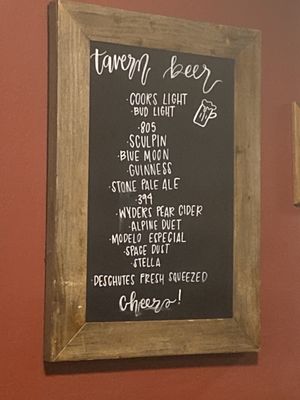 tavern beer
·COORS LIGHT
·BUD LIGHT
·805
·SCULPIN
·BLUE MOON
·GUINNESS
·STONE PALE ALE
·394
·WYDERS PEAR CIDER
·ALPINE DUET
·MODELO ESPECIAL
·SPACE DUST
·STELLA
·DESCHUTES FRESH SQUEEZED
cheers!